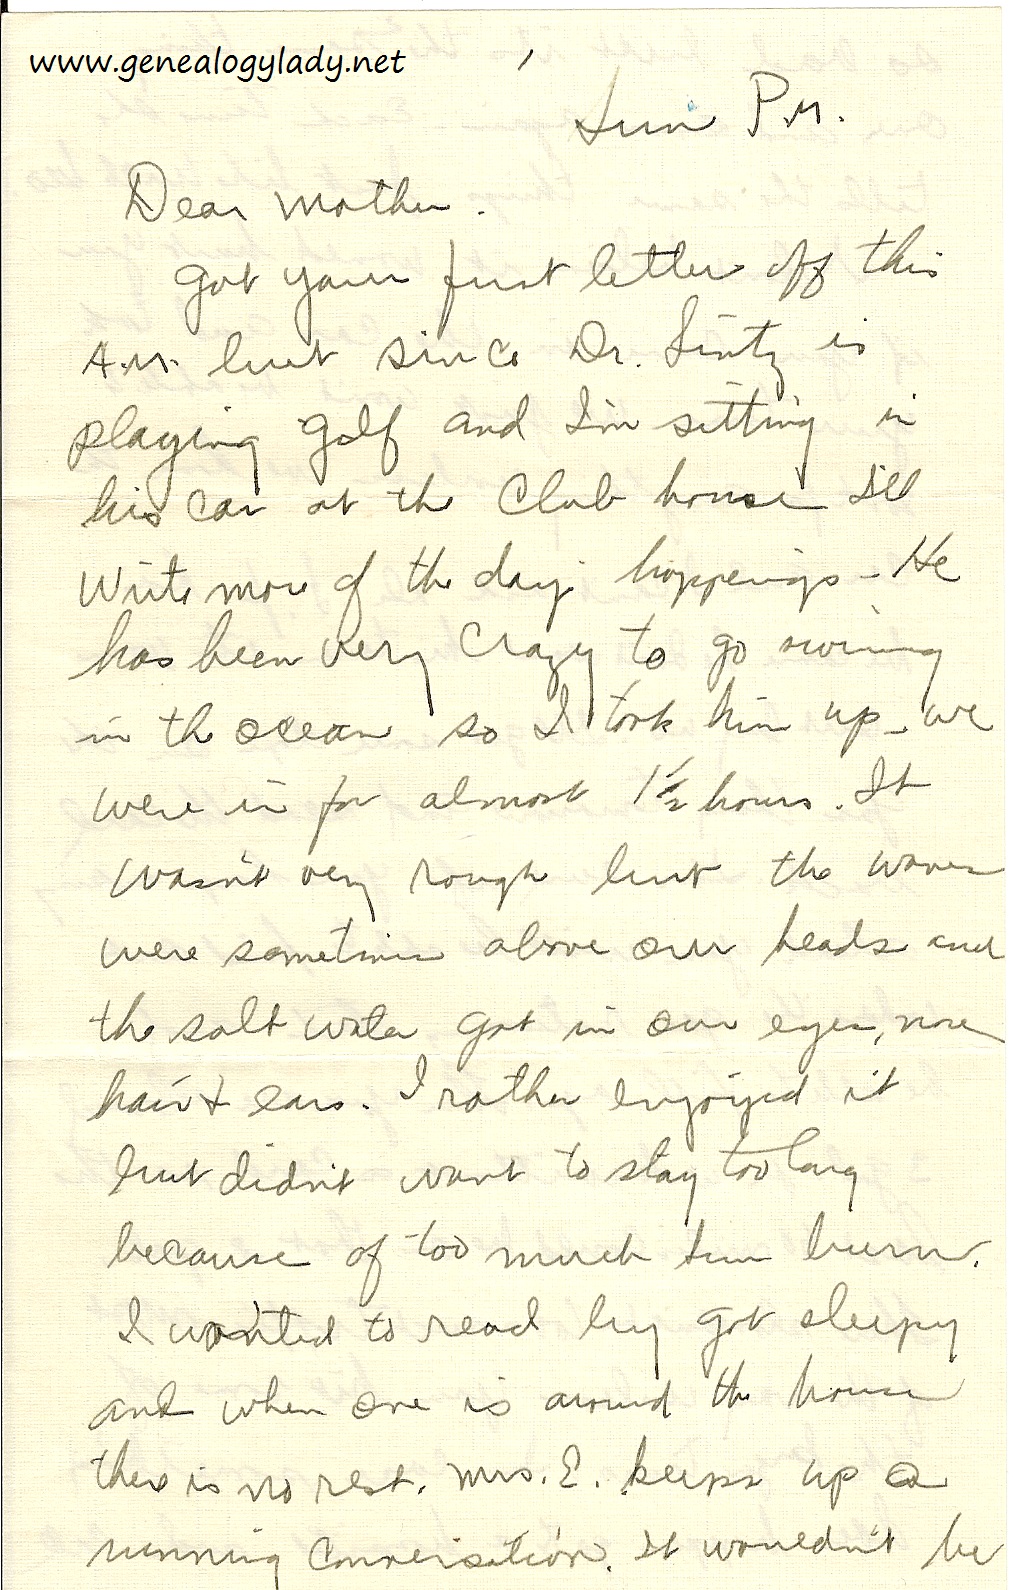 www.genealogylady.net
Sun P.M.
Dear Mother.
Got your first letter off this
A.M. but since Dr. Lintz is
playing golf and I'm sitting in
his car at the Club house I'll
write more of the days happenings - He
has been very crazy to go swiming
in the ocean so I took him up - we
were in for almost 1 1/2 hours. It
wasn't very rough but the waves
were sometimes above our heads and
the salt water got in our eyes, nose
hair & ears. I rather enjoyed it
but didn't want to stay too long
because of too much sun burn.
I wanted to read by got sleepy
and when one is around the house
there is no rest. Mrs. E. keeps up a
running conversation. It wouldn't be